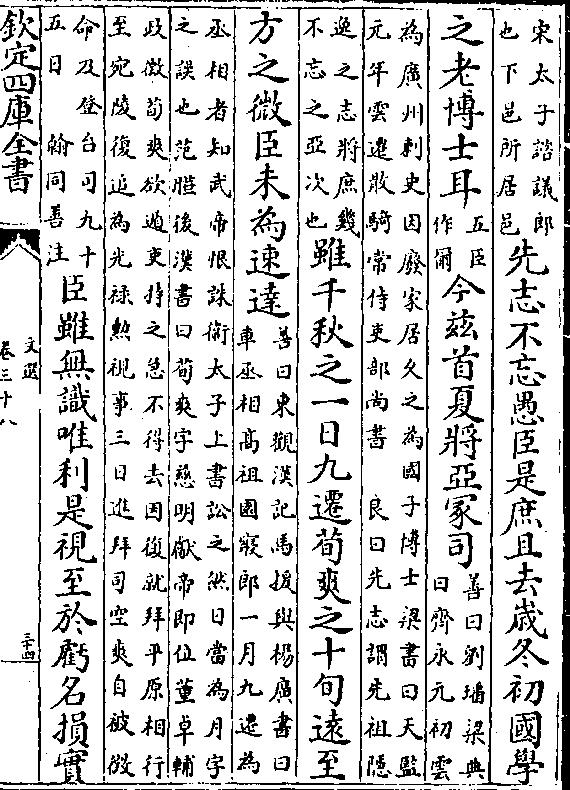 宋太子諮議郎
也下邑所居邑
先志不忘愚臣是庶且去歲冬初國學
之老博士耳
五臣
作爾
今兹首夏將亞冢司
善曰劉璠梁典
曰齊永元初雲
為廣州刺史因廢家居久之為國子博士梁書曰天監
元年雲遷散騎常侍吏部尚書 良曰先志謂先祖隱
逸之志將庶幾
不忘之亞次也
雖千秋之一日九遷荀爽之十旬遠至
方之微臣未為速達
善曰東觀漢記馬援與楊廣書曰
車丞相高祖園寢郎一月九遷為
丞相者知武帝恨誅衛太子上書訟之然日當為月字
之誤也范曄後漢書曰荀爽字慈明獻帝即位董卓輔
政徵荀爽欲遁吏持之急不得去因復就拜平原相行
至宛陵復追為光祿勲視事三日進拜司空爽自被徵
命及登台司九十
五日 翰同善注
臣雖無識唯利是視至於虧名損實
欽定四庫全書
文選
卷三十八
三十四